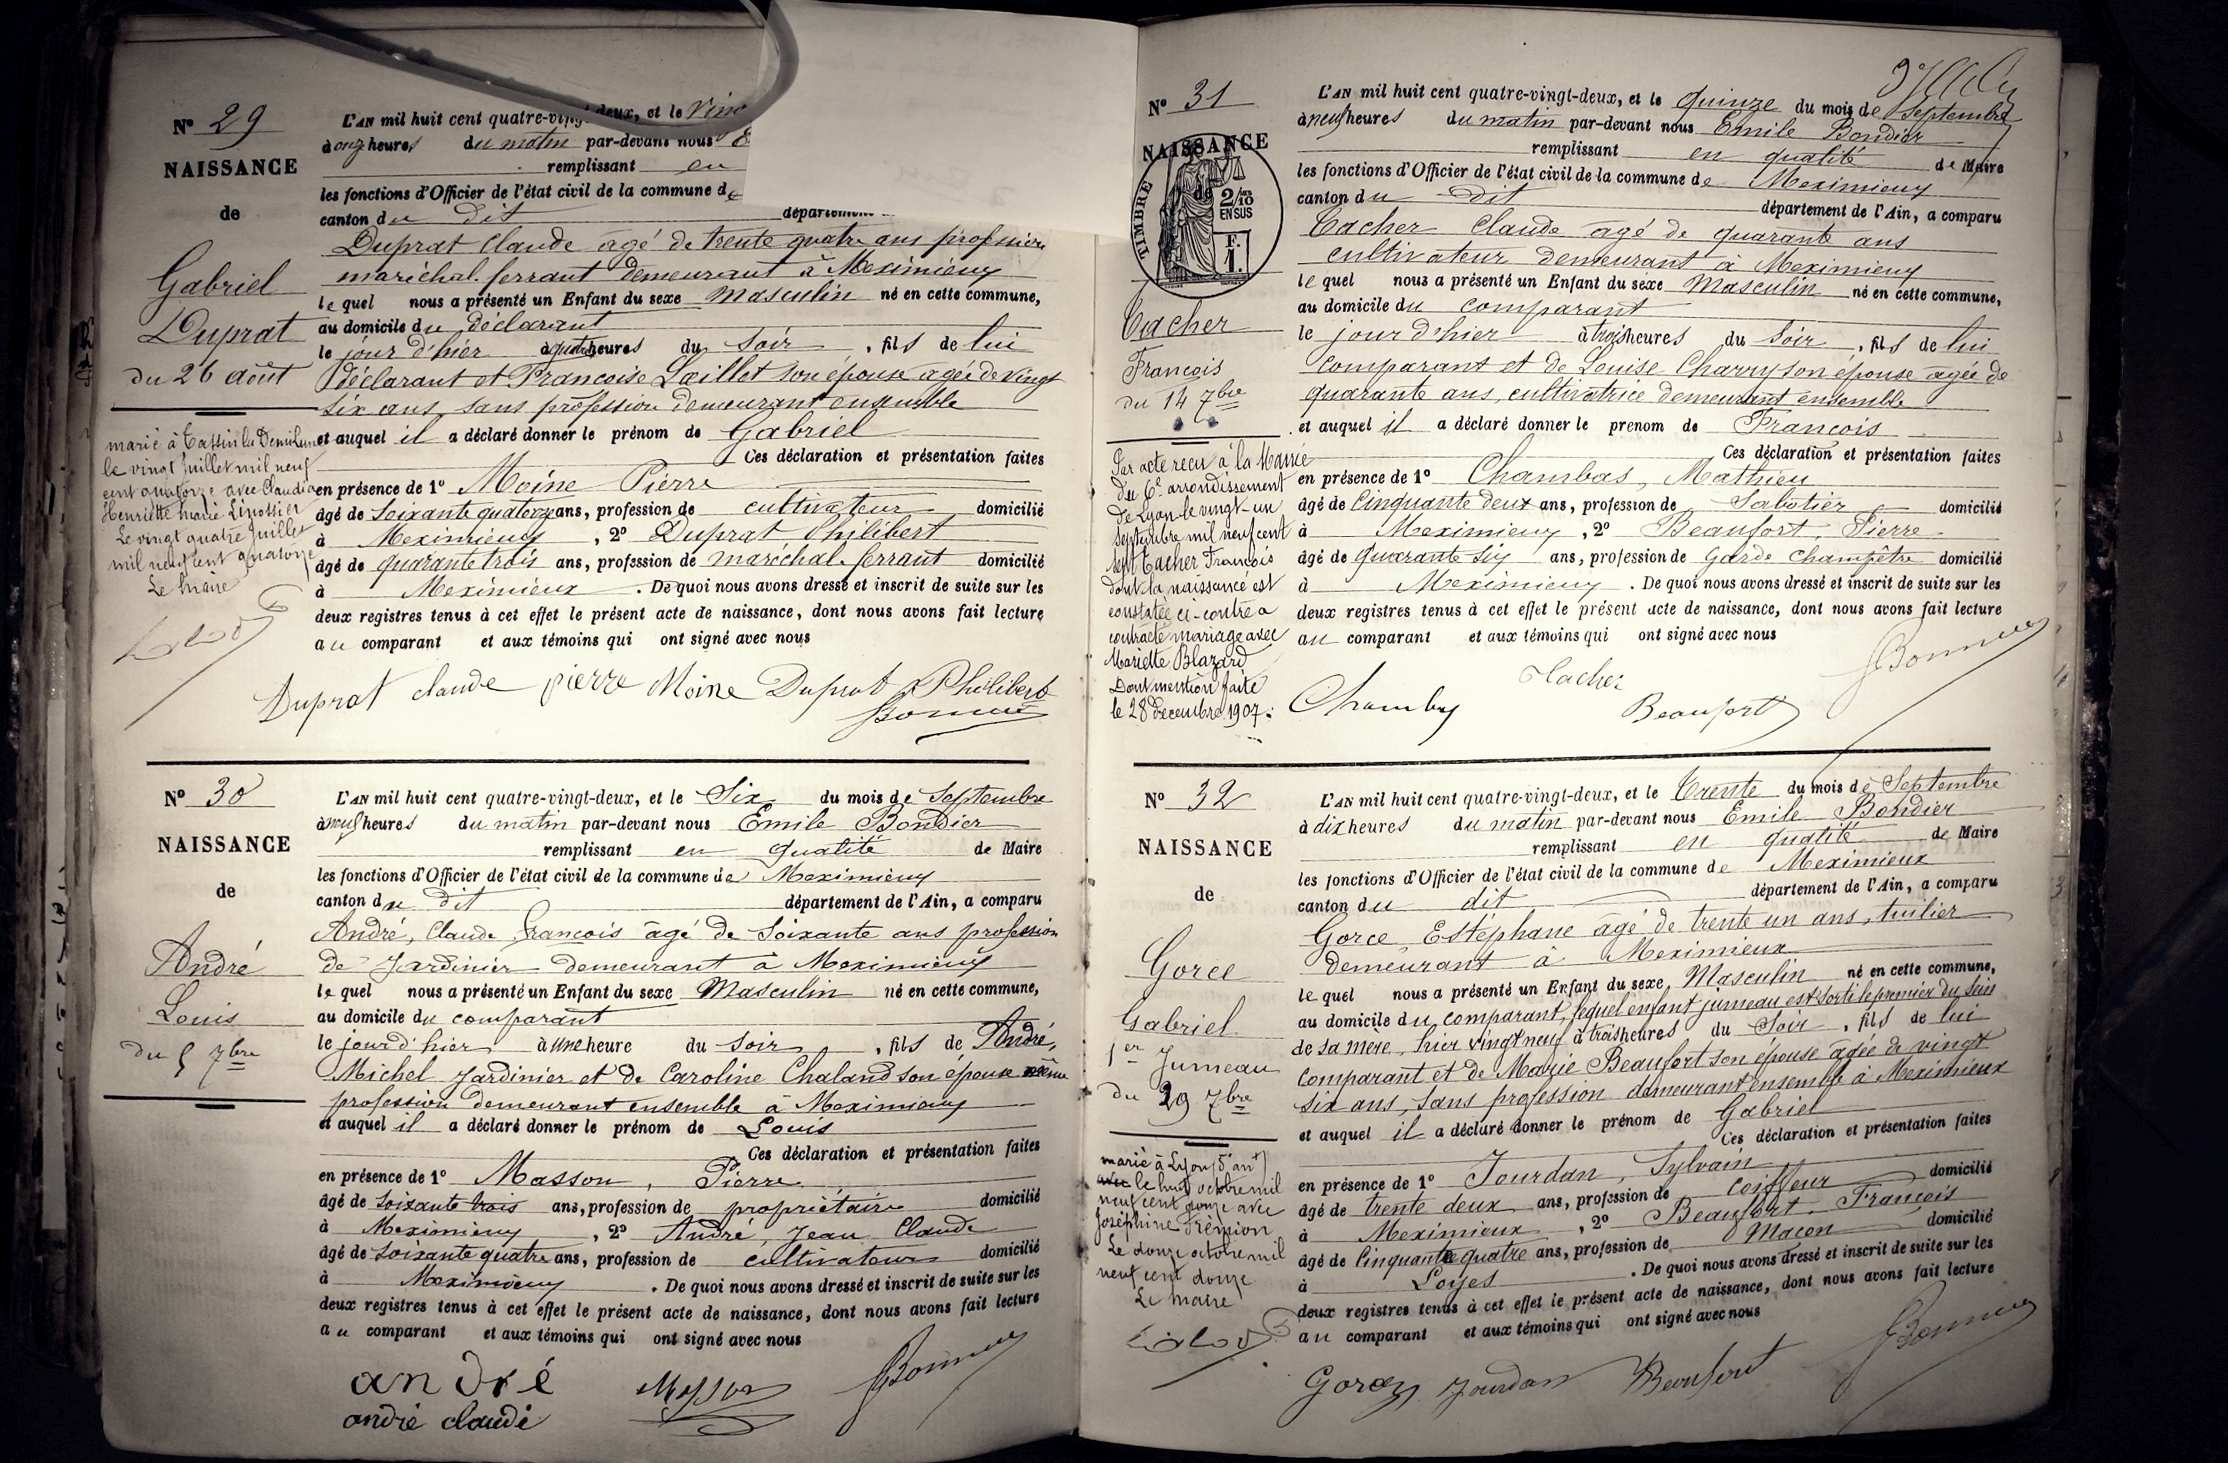 N° 29
NAISSANCE
de
Gabriel
Duprat
du 26 août
marié à Tassin la Demi Lune
le vingt juillet mil neuf
cent quatorze avec Claudia
Henriette Marie
Le vingt quatre juillet
mil neuf cent quatorze
Le Maire
L'AN mil huit cent quatre-vingt-deux, et le
à onze heures du matin par-devant nous
remplissant en
les fonctions d'Officier de l'état civil de la commune de
canton du dit département
Duprat Claude âgé de trente quatre ans profession
maréchal ferrant demeurant à Meximieux
lequel nous a présenté un Enfant du sexe Masculin né en cette commune,
au domicile du déclarant
le jour d'hier à quatre heures du soir, fils de lui
déclarant et Francoise Lœillet son épouse agée de vingt
six ans, sans profession demeurant ensemble
et auquel il a déclaré donner le prénom de Gabriel
Ces déclaration et présentation faites
en présence de 1° Moine Pierre
âgé de soixante quatorze ans, profession de cultivateur domicilié
à Meximieux, 2° Duprat Philibert
âgé de quarante trois ans, profession de maréchal ferrant domicilié
à Meximieux. De quoi nous avons dressé et inscrit de suite sur les
deux registres tenus à cet effet le présent acte de naissance, dont nous avons fait lecture
au comparant et aux témoins qui ont signé avec nous
Duprat claude pierre Moine Duprat Philibert
N° 30
NAISSANCE
de
André
Louis
du 5 7bre
L'AN mil huit cent quatre-vingt-deux, et le Six du mois de Septembre
à neuf heures du matin par-devant nous Emile Bondier
remplissant en qualité de Maire
les fonctions d'Officier de l'état civil de la commune de Meximieux
canton du dit département de l'Ain, a comparu
André, Claude François âgé de Soixante ans profession
de Jardinier demeurant à Meximieux
lequel nous a présenté un Enfant du sexe Masculin né en cette commune,
au domicile du comparant
le jour d'hier à une heure du soir, fils de André,
Michel Jardinier et de Caroline Chaland son épouse même
profession demeurant ensemble à Meximieux
et auquel il a déclaré donner le prénom de Louis
Ces déclaration et présentation faites
en présence de 1° Masson, Pierre
âgé de soixante trois ans, profession de propriétaire domicilié
à Meximieux, 2° André, Jean Claude
âgé de soixante quatre ans, profession de cultivateur domicilié
à Meximieux. De quoi nous avons dressé et inscrit de suite sur les
deux registres tenus à cet effet le présent acte de naissance, dont nous avons fait lecture
au comparant et aux témoins qui ont signé avec nous
andré
andré claude
Masson
N° 31
NAISSANCE
de
TIMBRE
2/10
EN SUS
F.
1.
Cacher
François
du 14 7bre
Par acte reçu à la Mairie
du 6e arrondissement
de Lyon le vingt-un
septembre mil neuf cent
sept Cacher François
dont la naissance est
constatée ci-contre a
contracté mariage avec
Mariette Blazard
Dont mention faite
le 28 décembre 1907.
L'AN mil huit cent quatre-vingt-deux, et le quinze du mois de Septembre
à neuf heures du matin par-devant nous Emile Bondier
remplissant en qualité de Maire
les fonctions d'Officier de l'état civil de la commune de Meximieux
canton du dit département de l'Ain, a comparu
Cacher Claude agé de quarante ans
cultivateur demeurant à Meximieux
lequel nous a présenté un Enfant du sexe Masculin né en cette commune,
au domicile du comparant
le jour d'hier à trois heures du soir, fils de lui
comparant et de Louise Charry son épouse agée de
quarante ans, cultivatrice demeurant ensemble
et auquel il a déclaré donner le prenom de Francois
Ces déclaration et présentation faites
en présence de 1° Chambas, Mathieu
âgé de Cinquante deux ans, profession de Sabotier domicilié
à Meximieux, 2° Beaufort, Pierre
âgé de quarante six ans, profession de garde champêtre domicilié
à Meximieux. De quoi nous avons dressé et inscrit de suite sur les
deux registres tenus à cet effet le présent acte de naissance, dont nous avons fait lecture
au comparant et aux témoins qui ont signé avec nous
Cacher
Beaufort
N° 32
NAISSANCE
de
Gorce
Gabriel
1er Jumeau
du 29 7bre
marié à Lyon (5e arrt)
avec le huit octobre mil
neuf cent douze avec
Joséphine
Le douze octobre mil
neuf cent douze
Le Maire
L'AN mil huit cent quatre-vingt-deux, et le Trente du mois de Septembre
à dix heures du matin par-devant nous Emile Bondier
remplissant en qualité de Maire
les fonctions d'Officier de l'état civil de la commune de Meximieux
canton du dit département de l'Ain, a comparu
Gorce, Estéphane agé de trente un ans, tuilier
demeurant à Meximieux
lequel nous a présenté un Enfant du sexe Masculin né en cette commune,
au domicile du comparant, lequel enfant jumeau est sorti le premier du sein
de sa mère, hier vingt neuf à trois heures du Soir, fils de lui
comparant et de Marie Beaufort son épouse agée de vingt
six ans, sans profession demeurant ensemble à Meximieux
et auquel il a déclaré donner le prénom de Gabriel
Ces déclaration et présentation faites
en présence de 1° Jourdan, Sylvain
âgé de trente deux ans, profession de coiffeur domicilié
à Meximieux, 2° Beaufort, François
âgé de Cinquante quatre ans, profession de Macon domicilié
à Loyes. De quoi nous avons dressé et inscrit de suite sur les
deux registres tenus à cet effet le présent acte de naissance, dont nous avons fait lecture
au comparant et aux témoins qui ont signé avec nous
Gorce Jourdan Beaufort